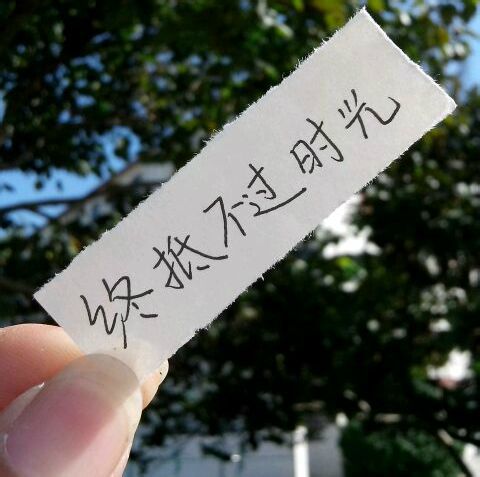 终抵不过时光